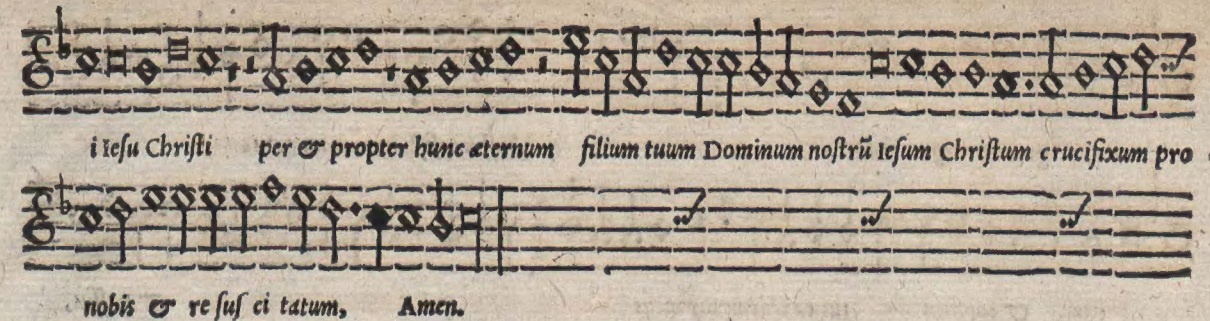 i Ieſu Chriſti per & propter hunc æternum filium tuum Dominum noſtrũ Ieſum Chriſtum crucifixum pro
nobis & re ſuſ ci tatum, Amen.